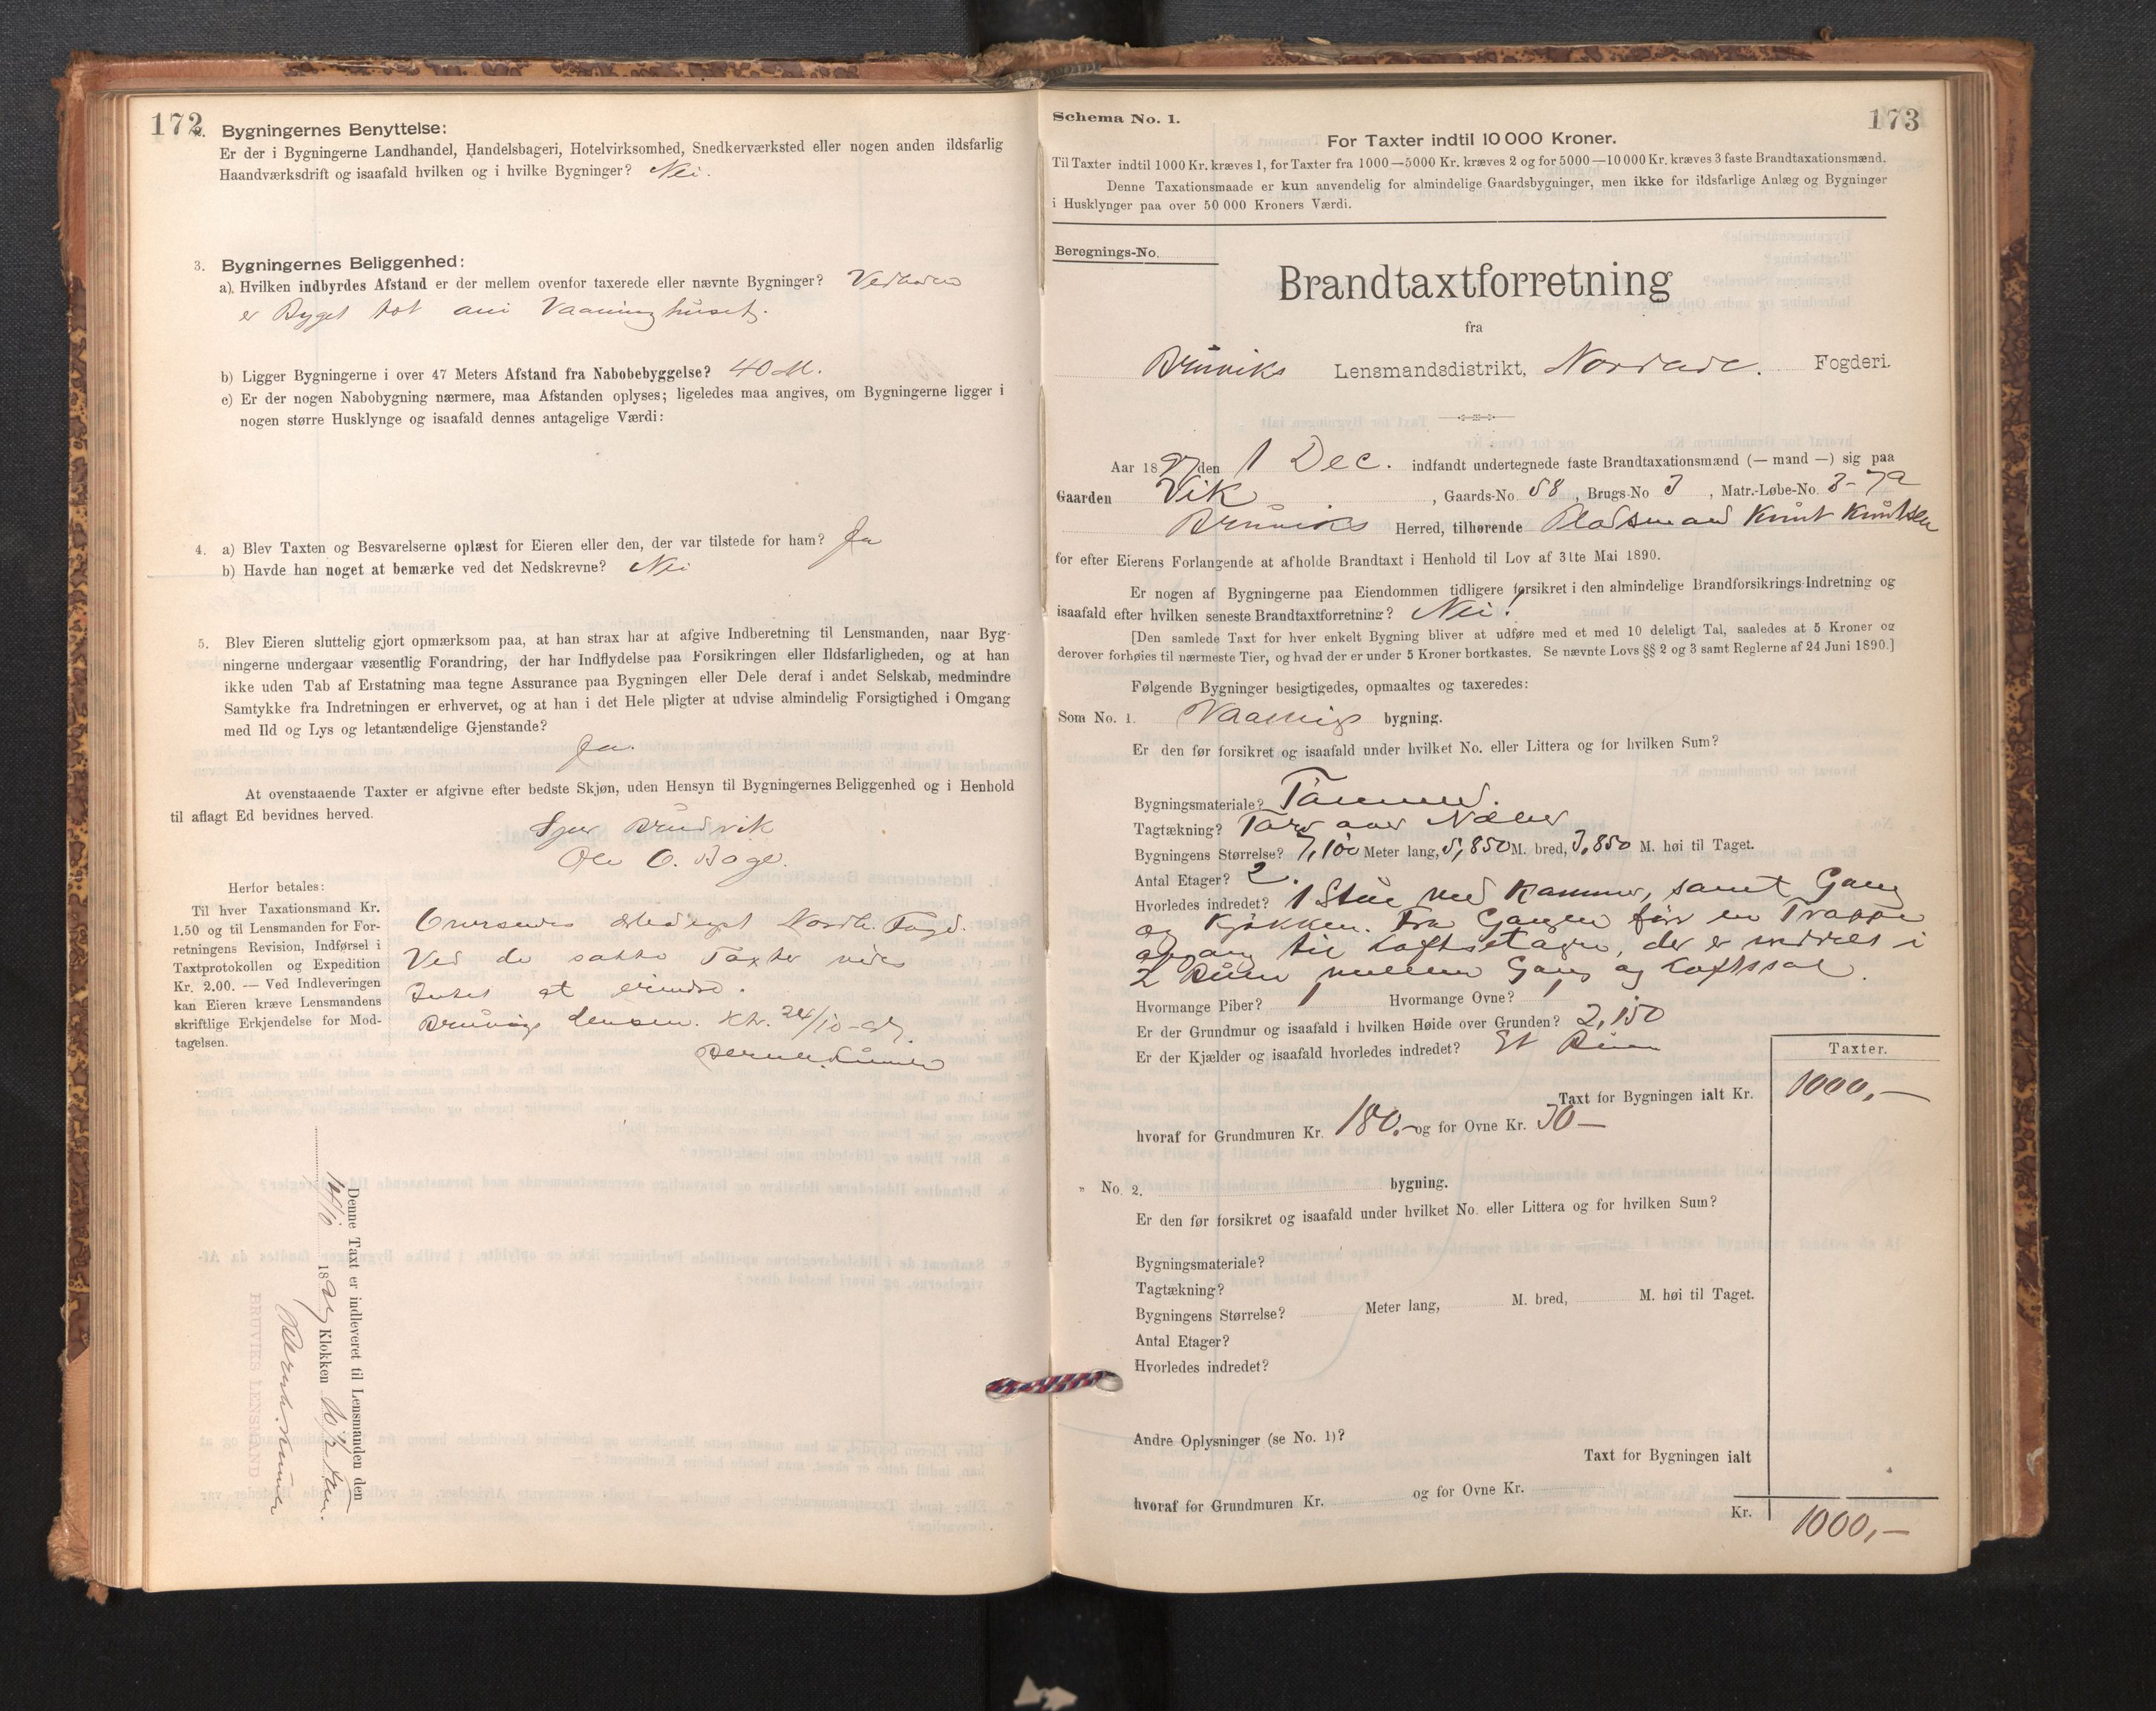 172
2. Bygningernes Benyttelse:
Er der i Bygningerne Landhandel, Handelsbageri, Hotelvirksomhed, Snedkerværksted eller nogen anden ildsfarlig
Haandværksdrift og isaafald hvilken og i hvilke Bygninger? Nei.
3. Bygningernes Beliggenhed:
a). Hvilken indbyrdes Afstand er der mellem ovenfor taxerede eller nævnte Bygninger?
er Bygget tæt Vaaningshuset.
b) Ligger Bygningerne i over 47 Meters Afstand fra Nabobebyggelse? 40 M.
c) Er der nogen Nabobygning nærmere, maa Afstanden oplyses; ligeledes maa angives, om Bygningerne ligger i
nogen større Husklynge og isaafald dennes antagelige Værdi:
4. a) Blev Taxten og Besvarelserne oplæst for Eieren eller den, der var tilstede for ham? Ja
b) Havde han noget at bemærke ved det Nedskrevne? Nei
5. Blev Eieren sluttelig gjort opmærksom paa, at han strax har at afgive Indberetning til Lensmanden, naar Byg-
ningerne undergaar væsentlig Forandring, der har Indflydelse paa Forsikringen eller Ildsfarligheden, og at han
ikke uden Tab af Erstatning maa tegne Assurance paa Bygningen eller Dele deraf i andet Selskab, medmindre
Samtykke fra Indretningen er erhvervet, og at han i det Hele pligter at udvise almindelig Forsigtighed i Omgang
med Ild og Lys og letantændelige Gjenstande?
Ja.
At ovenstaaende Taxter er afgivne efter bedste Skjøn, uden Hensyn til Bygningernes Beliggenhed og i Henhold
til aflagt Ed bevidnes herved.
Sjur Bruvik
Ole O.Boge.
Herfor betales:
Til hver Taxationsmand Kr.
1,50 og til Lensmanden for For-
retningens Revision, Indførsel i
Taxtprotokollen og Expedition
Kr. 2.00. — Ved Indleveringen
kan Eieren kræve Lensmandens
skriftlige Erkjendelse for Mod-
tagelsen.
Oversendes Nordh. Fogd.
Ved de satte Taxter vides
Intet at erindre.
Bruvigs Lensm. Ktr. 24/10-97.
Denne Taxt er indleveret til Lensmanden den
1897 Klokken
BRUVIKS LENSMAND
173
Schema No. 1.
For Taxter indtil 10 000 Kroner.
Til Taxter indtil 1000 Kr. kræves 1, for Taxter fra 1000—5000 Kr. kræves 2 og for 5000—10 000 Kr. kræves 3 faste Brandtaxationsmænd.
Denne Taxationsmaade er kun anvendelig for almindelige Gaardsbygninger, men ikke for ildsfarlige Anlæg og Bygninger
i Husklynger paa over 50 000 Kroners Værdi.
Beregnings-No.
Brandtaxtforretning
fra
Bruviks Lensmandsdistrikt, Nordhordl. Fogderi.
Aar 1897 den 1 Dec. indfandt undertegnede faste Brandtaxationsmænd (— mand —) sig paa
Gaarden Vik, Gaards-No. 58, Brugs-No 3, Matr.-Løbe-No. 3-7a
Bruviks Herred, tilhørende Pladsmand Knut Knutsen
for efter Eierens Forlangende at afholde Brandtaxt i Henhold til Lov af 31te Mai 1890.
Er nogen af Bygningerne paa Eiendommen tidligere forsikret i den almindelige Brandforsikrings-Indretning og
isaafald efter hvilken seneste Brandtaxtforretning? Nei!
[Den samlede Taxt for hver enkelt Bygning bliver at udføre med et med 10 deleligt Tal, saaledes at 5 Kroner og
derover forhøies til nærmeste Tier, og hvad der er under 5 Kroner bortkastes. Se nævnte Lovs §§ 2 og 3 samt Reglerne af 24 Juni 1890.]
Følgende Bygninger besigtigedes, opmaaltes og taxeredes:
Som No. 1. Vaanings bygning.
Er den før forsikret og isaafald under hvilket No. eller Littera og for hvilken Sum?
Bygningsmateriale? Tømmer.
Tagtækning? Torv over Næver
Bygningens Størrelse? 7,100 Meter lang, 5,850 M. bred, 3,850 M. høi til Taget.
Antal Etager? 2.
Hvorledes indredet? 1 Stue med Kammer, samt Gang
og Kjøkken. Fra Gangen før en Trappe
opgang til Loftsetagen, der er inddelt i
2 Rum mellem Gang og Loftssal.
Hvormange Piber? 1 Hvormange Ovne? 1
Er der Grundmur og isaafald i hvilken Høide over Grunden? 2,150
Er der Kjælder og isaafald hvorledes indredet? Et Rum
Taxter.
Taxt for Bygningen ialt Kr. 1000,—
hvoraf for Grundmuren Kr. 180.— og for Ovne Kr. 30—
„ No. 2. bygning.
Er den før forsikret og isaafald under hvilket No. eller Littera og for hvilken Sum?
Bygningsmateriale?
Tagtækning?
Bygningens Størrelse? Meter lang, M. bred, M. høi til Taget.
Antal Etager?
Hvorledes indredet?
Andre Oplysninger (se No. 1)?
Taxt for Bygningen ialt
hvoraf for Grundmuren Kr. og for Ovne Kr.
Kr. 1000,—